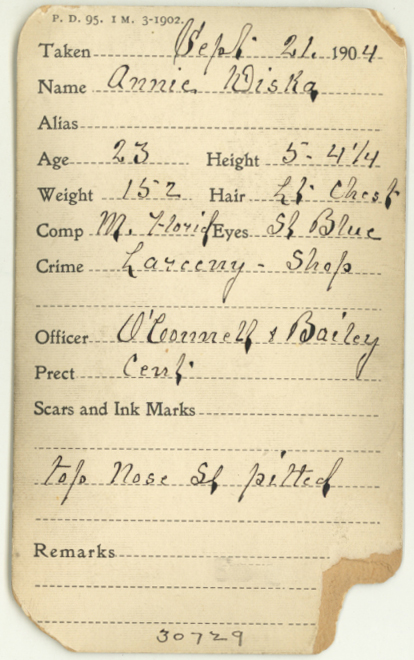 P. D. 95. 1 M. 3-1902.
Taken Sept. 21. 1904
Name Annie Wiska
Alias
Age 23 Height 5-4 1/4
Weight 152 Hair Lt. Chest
Comp M. Florid Eyes Sl Blue
Crime Larceny - Shop
Officer O'Connell & Bailey
Prect Cent.
Scars and Ink Marks
top Nose Sl pitted
Remarks
30729